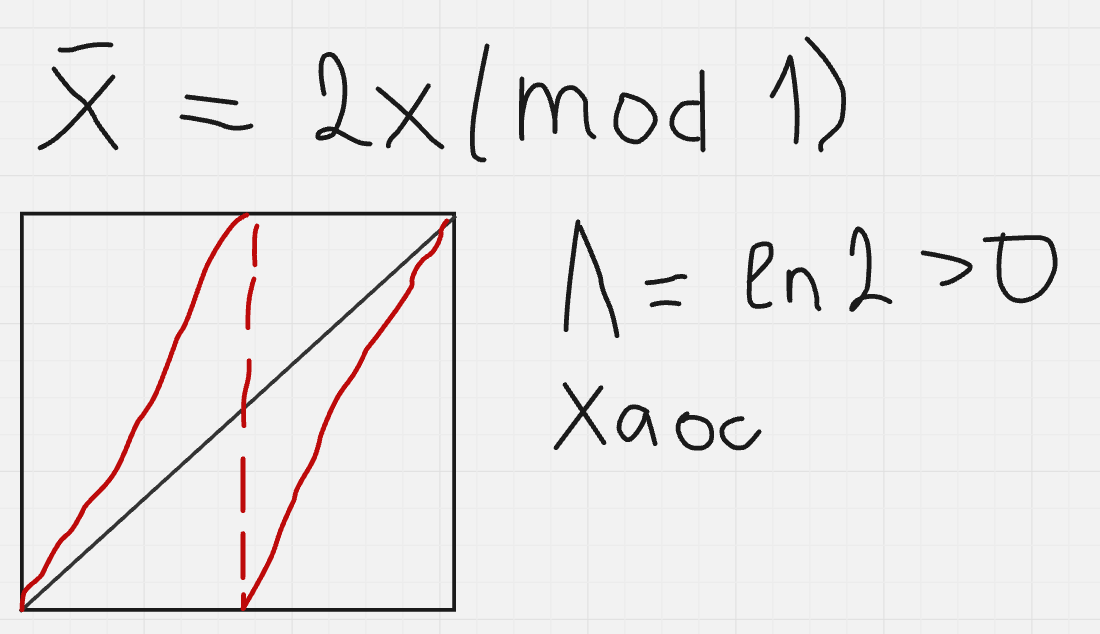 x̄ = 2x(mod 1)
Λ = ln2 > 0
Хаос